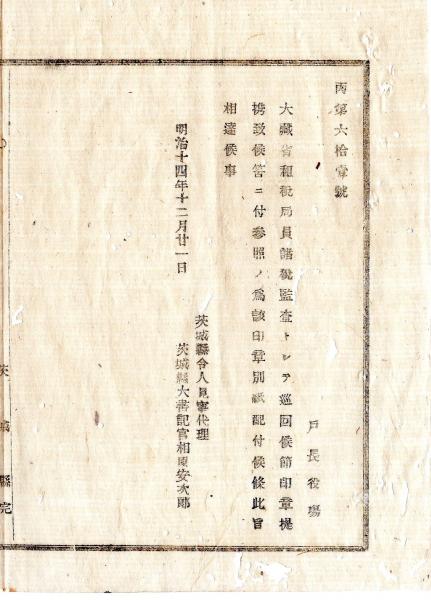 丙第六拾壹號
戸長役場
大藏省租税局員諸税監査トシテ巡回候節印章提
携致候筈ニ付参照ノ爲該印章別紙配付候條此旨
相達候事
明治十四年十二月廿一日
茨城縣令人見寧代理
茨城縣大書記官相原安次郎
茨城縣